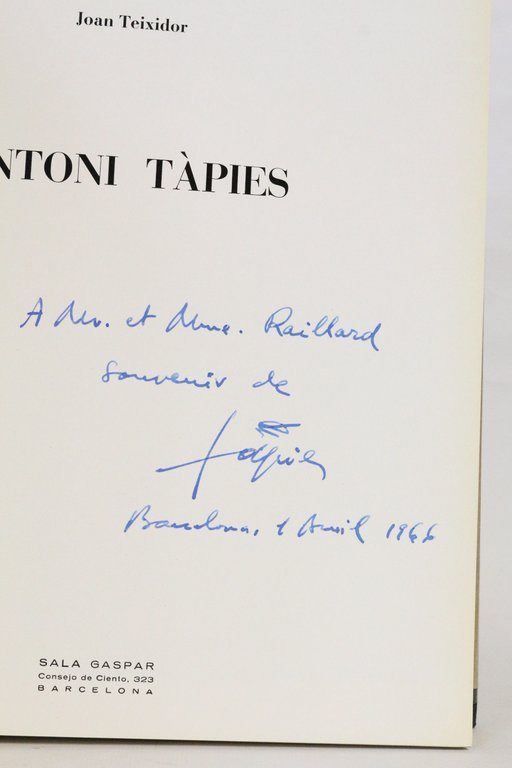 Joan Teixidor
NTONI TÀPIES
A Mr. et Mme. Raillard
souvenir de
Tàpies
Barcelona, 1 Avril 1966
SALA GASPAR
Consejo de Ciento, 323
BARCELONA